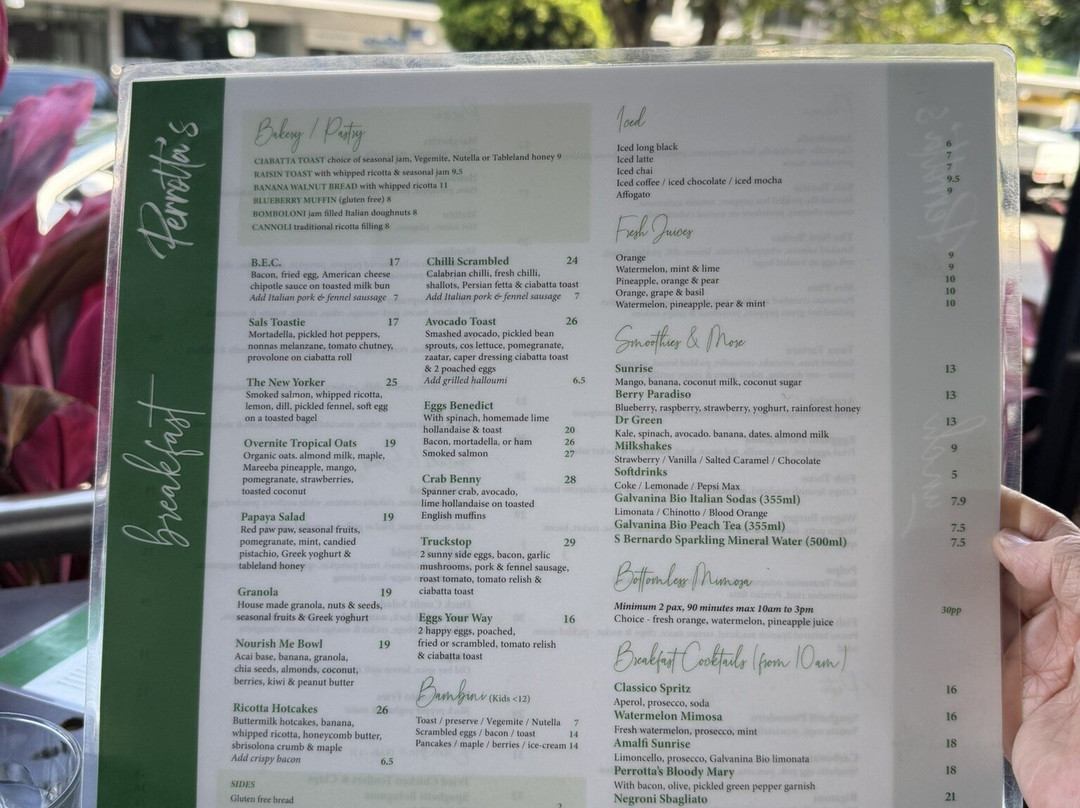 Perrotta's
breakfast
Bakery / Pastry
CIABATTA TOAST choice of seasonal jam, Vegemite, Nutella or Tableland honey 9
RAISIN TOAST with whipped ricotta & seasonal jam 9.5
BANANA WALNUT BREAD with whipped ricotta 11
BLUEBERRY MUFFIN (gluten free) 8
BOMBOLONI jam filled Italian doughnuts 8
CANNOLI traditional ricotta filling 8
B.E.C. 17
Bacon, fried egg, American cheese
chipotle sauce on toasted milk bun
Add Italian pork & fennel saussage 7
Sals Toastie 17
Mortadella, pickled hot peppers,
nonnas melanzane, tomato chutney,
provolone on ciabatta roll
The New Yorker 25
Smoked salmon, whipped ricotta,
lemon, dill, pickled fennel, soft egg
on a toasted bagel
Overnite Tropical Oats 19
Organic oats. almond milk, maple,
Mareeba pineapple, mango,
pomegranate, strawberries,
toasted coconut
Papaya Salad 19
Red paw paw, seasonal fruits,
pomegranate, mint, candied
pistachio, Greek yoghurt &
tableland honey
Granola 19
House made granola, nuts & seeds,
seasonal fruits & Greek yoghurt
Nourish Me Bowl 19
Acai base, banana, granola,
chia seeds, almonds, coconut,
berries, kiwi & peanut butter
Ricotta Hotcakes 26
Buttermilk hotcakes, banana,
whipped ricotta, honeycomb butter,
sbrisolona crumb & maple
Add crispy bacon 6.5
SIDES
Gluten free bread
Chilli Scrambled 24
Calabrian chilli, fresh chilli,
shallots, Persian fetta & ciabatta toast
Add Italian pork & fennel sausage 7
Avocado Toast 26
Smashed avocado, pickled bean
sprouts, cos lettuce, pomegranate,
zaatar, caper dressing ciabatta toast
& 2 poached eggs
Add grilled halloumi 6.5
Eggs Benedict
With spinach, homemade lime
hollandaise & toast 20
Bacon, mortadella, or ham 26
Smoked salmon 27
Crab Benny 28
Spanner crab, avocado,
lime hollandaise on toasted
English muffins
Truckstop 29
2 sunny side eggs, bacon, garlic
mushrooms, pork & fennel sausage,
roast tomato, tomato relish &
ciabatta toast
Eggs Your Way 16
2 happy eggs, poached,
fried or scrambled, tomato relish
& ciabatta toast
Bambini (Kids <12)
Toast / preserve / Vegemite / Nutella 7
Scrambled eggs / bacon / toast 14
Pancakes / maple / berries / ice-cream 14
Iced
Iced long black 6
Iced latte 7
Iced chai 7
Iced coffee / iced chocolate / iced mocha 9.5
Affogato 9
Fresh Juices
Orange 9
Watermelon, mint & lime 9
Pineapple, orange & pear 10
Orange, grape & basil 10
Watermelon, pineapple, pear & mint 10
Smoothies & More
Sunrise 13
Mango, banana, coconut milk, coconut sugar
Berry Paradiso 13
Blueberry, raspberry, strawberry, yoghurt, rainforest honey
Dr Green 13
Kale, spinach, avocado. banana, dates. almond milk
Milkshakes 9
Strawberry / Vanilla / Salted Caramel / Chocolate
Softdrinks 5
Coke / Lemonade / Pepsi Max
Galvanina Bio Italian Sodas (355ml) 7.9
Limonata / Chinotto / Blood Orange
Galvanina Bio Peach Tea (355ml) 7.5
S Bernardo Sparkling Mineral Water (500ml) 7.5
Bottomless Mimosa
Minimum 2 pax, 90 minutes max 10am to 3pm 30pp
Choice - fresh orange, watermelon, pineapple juice
Breakfast Cocktails (from 10am)
Classico Spritz 16
Aperol, prosecco, soda
Watermelon Mimosa 16
Fresh watermelon, prosecco, mint
Amalfi Sunrise 18
Limoncello, prosecco, Galvanina Bio limonata
Perrotta's Bloody Mary 18
With bacon, olive, pickled green pepper garnish
Negroni Sbagliato 21